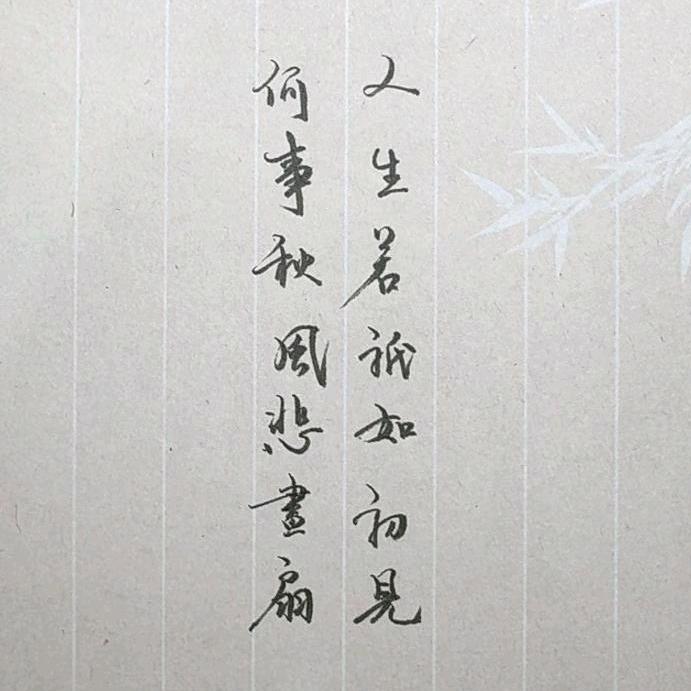 人生若祗如初見
何事秋風悲畫扇